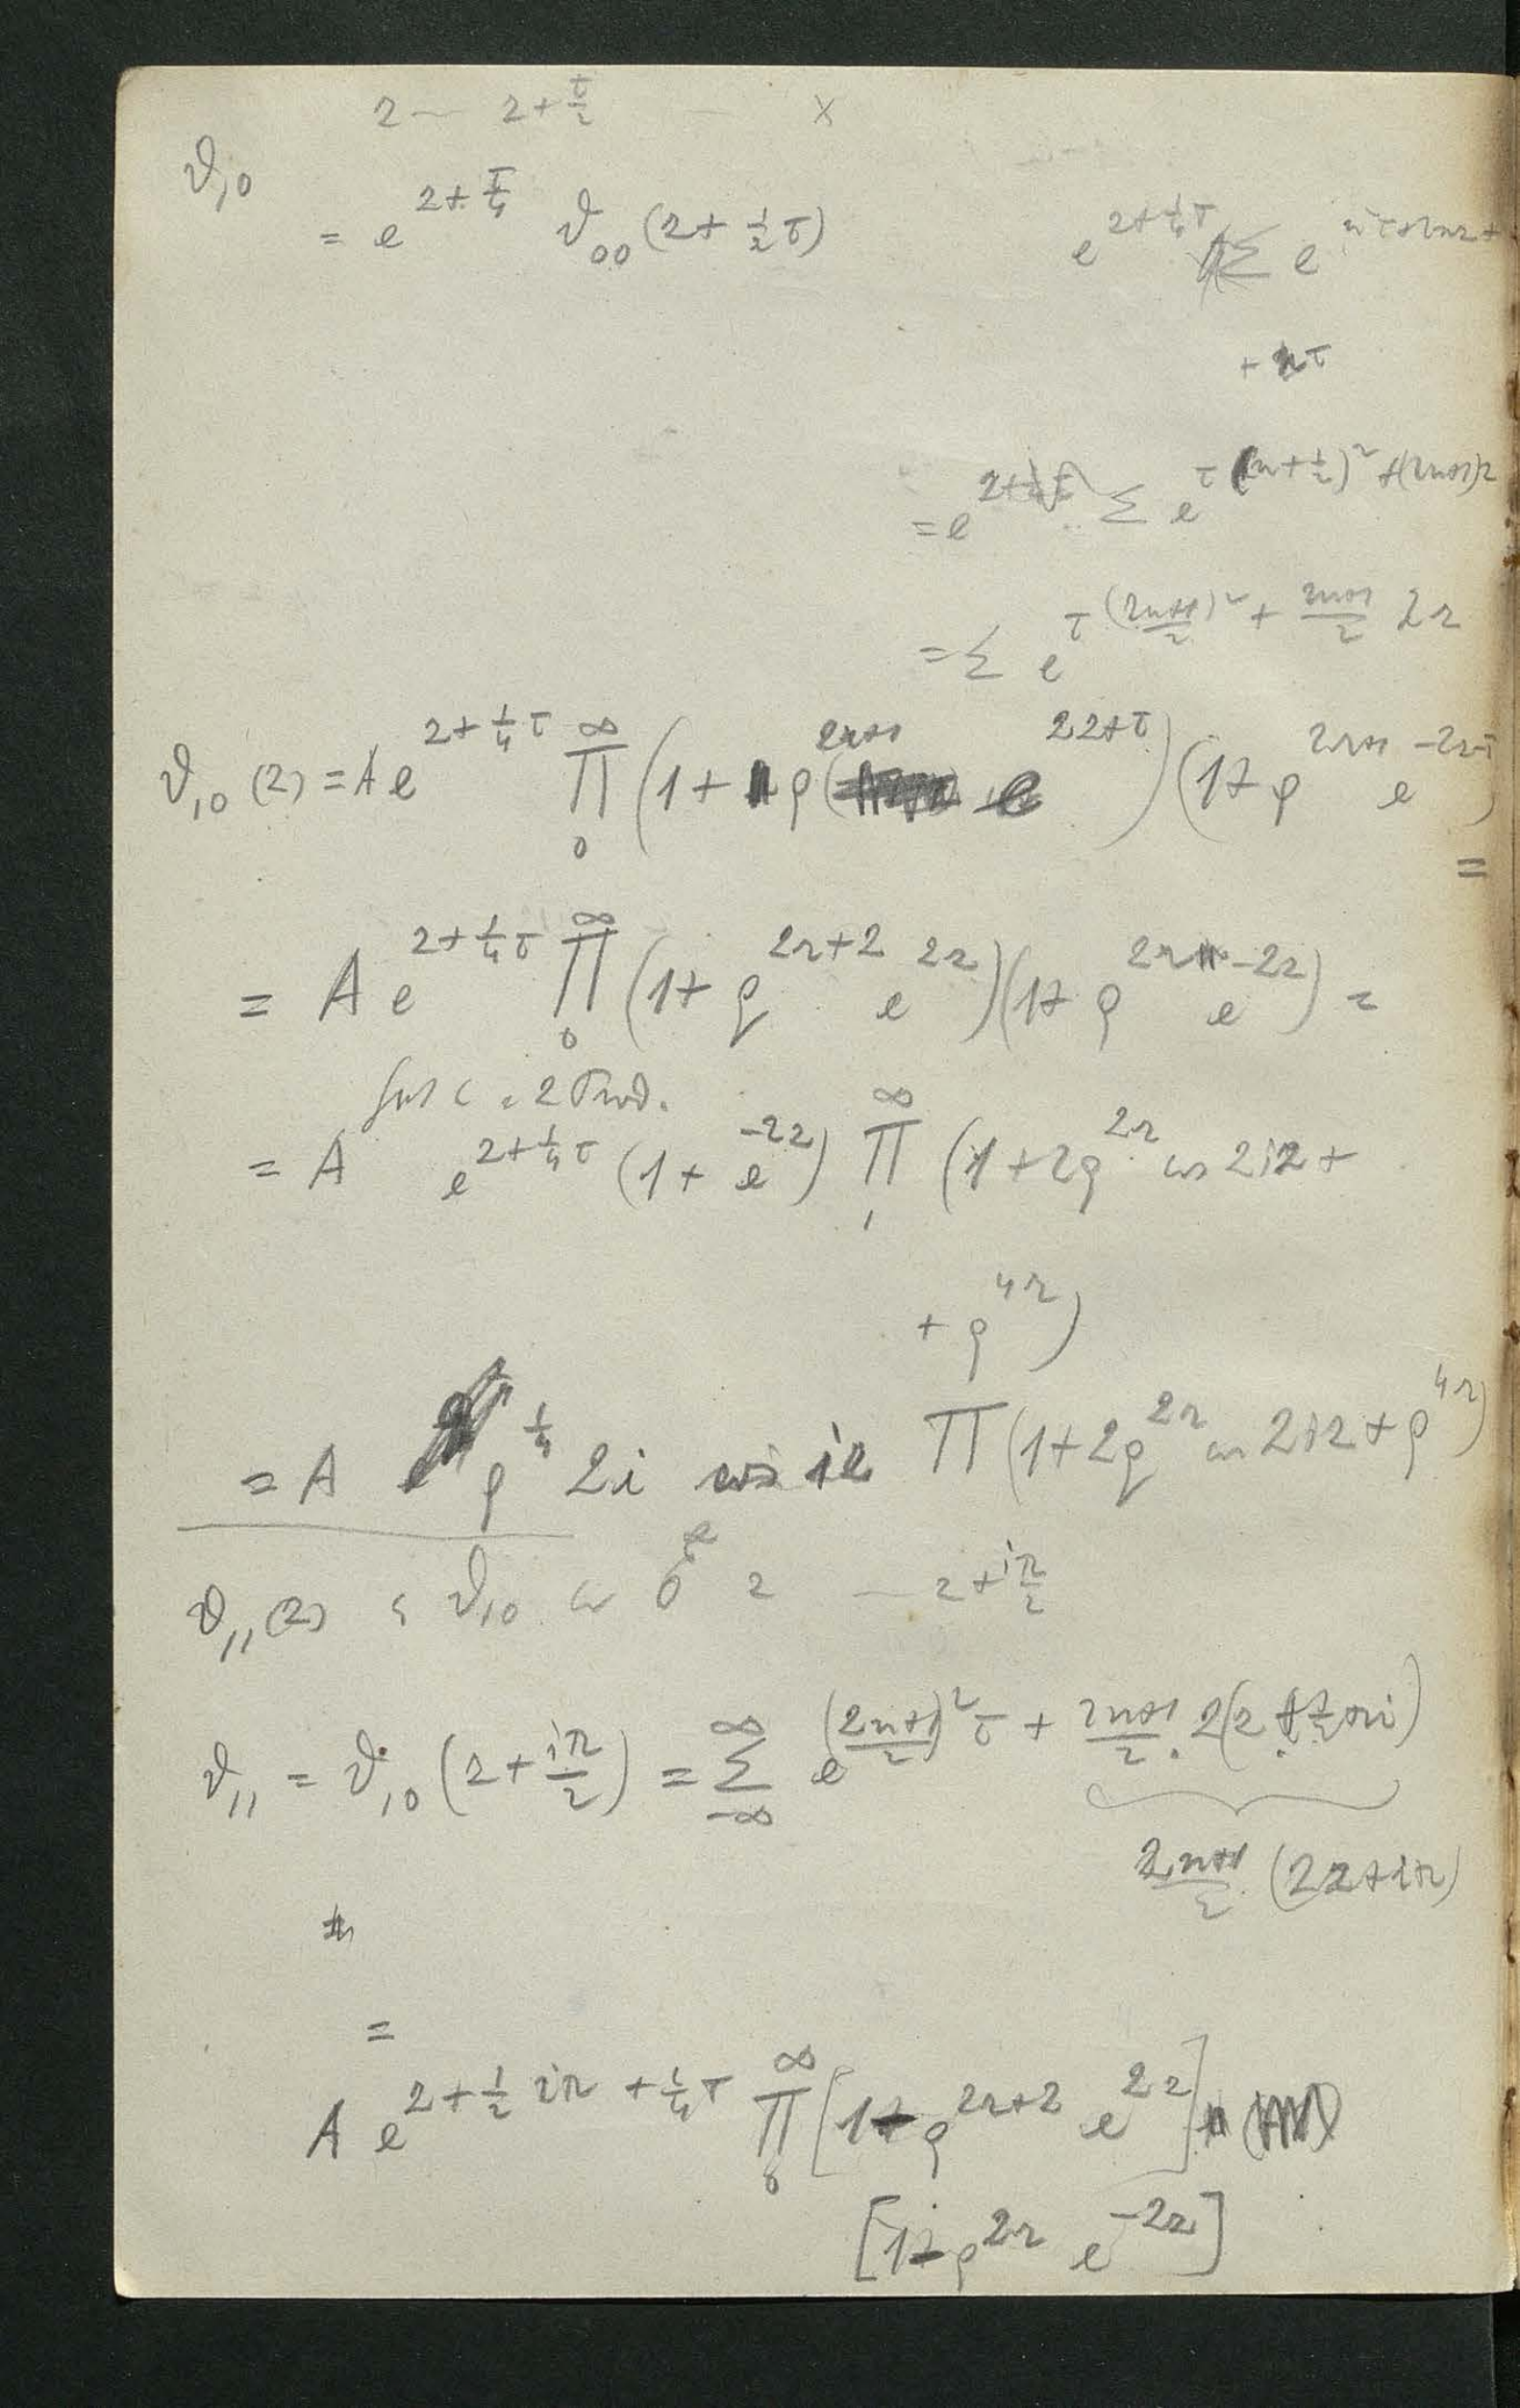 z — z + τ/2 — ×
ϑ₁₀
= e^{z + τ/4} ϑ₀₀ (z + ½ τ)
e^{z + ¼ τ} Σ e^{n²τ + 2nz +
+ nτ
= e^{z} Σ e^{τ (n + ½)² + (2n+1)z}
= Σ e^{τ ((2n+1)/2)² + (2n+1)/2 2z}
ϑ₁₀ (z) = A e^{z + ¼ τ} ∏_0^∞ (1 + q^{2r+1} e^{2z+τ}) (1 + q^{2r+1} e^{-2z-τ})
=
= A e^{z + ¼ τ} ∏_0^∞ (1 + q^{2r+2} e^{2z}) (1 + q^{2r} e^{-2z}) =
= A e^{z + ¼ τ} (1 + e^{-2z}) ∏_1^∞ (1 + 2q^{2r} cos 2iz +
+ q^{4r})
= A q^{¼} 2i cos iz ∏ (1 + 2q^{2r} cos 2iz + q^{4r})
ϑ₁₁ (z) ϑ₁₀ z — z + iπ/2
ϑ₁₁ = ϑ₁₀ (z + iπ/2) = Σ_{-∞}^{∞} e^{((2n+1)/2)² τ + (2n+1)/2 . 2(z + ½ πi)}
(2n+1)/2 (2z + iπ)
=
A e^{z + ½ iπ + ¼ τ} ∏_0^∞ [1 - q^{2r+2} e^{2z}]
[1 - q^{2r} e^{-2z}]